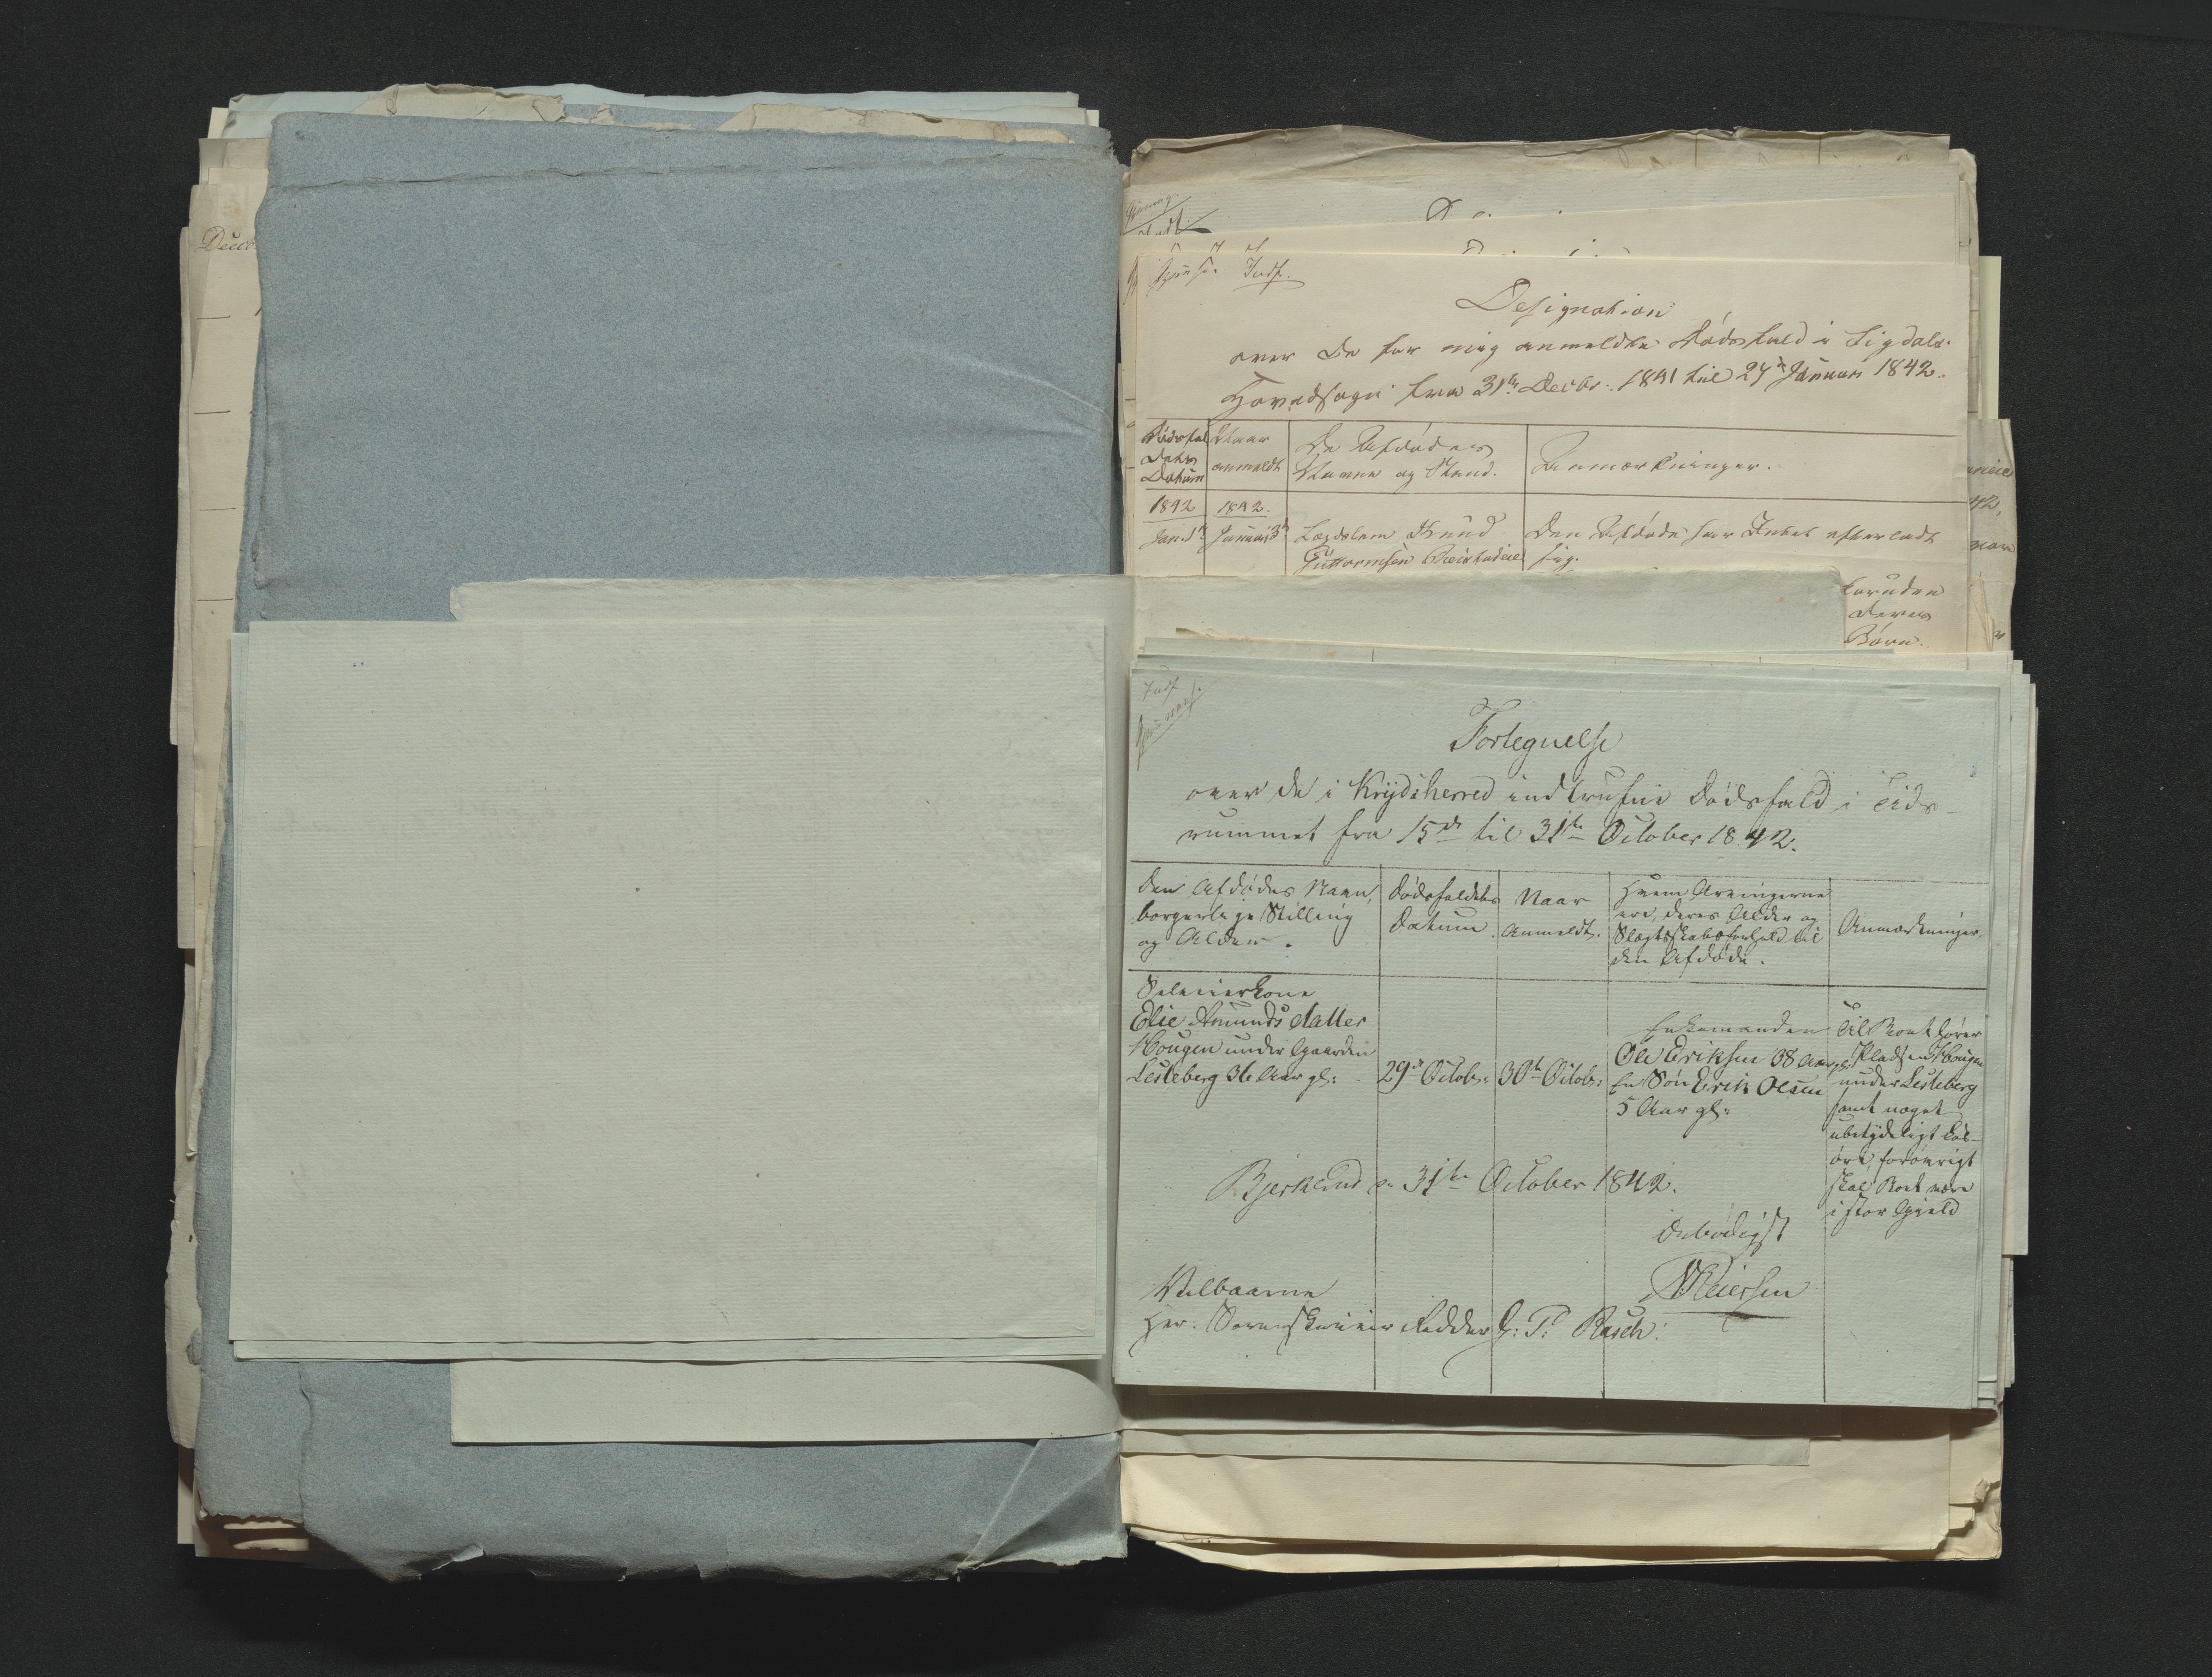 Decbr
Designation
over De for mig anmeldte Dødsfald i Sigdals
Hovedsogn fra 31te Decbr. 1841 til 27de Januari 1842.
Dødsfal
dets
Datum
Naar
anmeldt
De Afdødes
Navne og Stand.
Anmærkninger.
1842
1842.
Jan. 1ste
Januari 3de
Lægdslem Knud
Guttormsen
Den Afdøde har Intet efterladt
sig.
foruden
deres
Børn.
Indf
Fortegnelse
over de i Krydsherred indtrufne Dødsfald i Tids-
rummet fra 15de til 31te October 1842.
Den Afdødes Navn,
borgerlige Stilling
og Alder.
Dødsfaldets
Datum.
Naar
Anmeldt.
Hvem Arvingerne
ere, deres Alder og
Slægtskabsforhold til
den Afdøde.
Anmærkninger.
Selveierkone
Elie Amunds datter
Hougen under Gaarden
Lesteberg 36 Aar gl:
29de Octob:
30te Octob:
Enkemanden
Ole Eriksen 38 Aar gl:
En Søn Erik Olsen
5 Aar gl:
Til Boet hører
Pladsen Hougen
under Lesteberg
samt noget
ubetydeligt Løs-
øre, forøvrigt
skal Boet være
i stor Gjeld
Bjerkerud d. 31te October 1842.
Ærbødigst
Velbaarne
Herr. Sorenskriver Ridder G: P: Rasch.